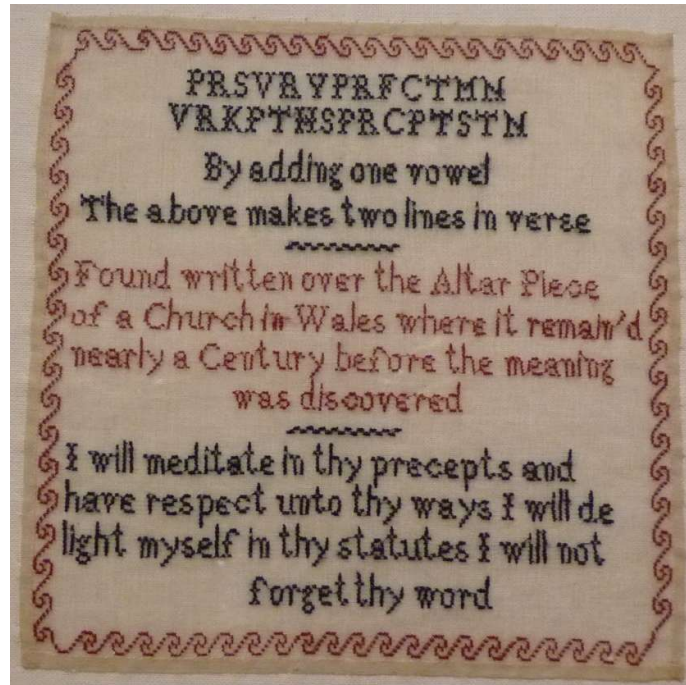 PRSVRYPRFCTMN
VRKPTHSPRCPTSTN
By adding one vowel
The above makes two lines in verse
Found written over the Altar Piece
of a Church in Wales where it remain'd
nearly a Century before the meaning
was discovered
I will meditate in thy precepts and
have respect unto thy ways I will de
light myself in thy statutes I will not
forget thy word